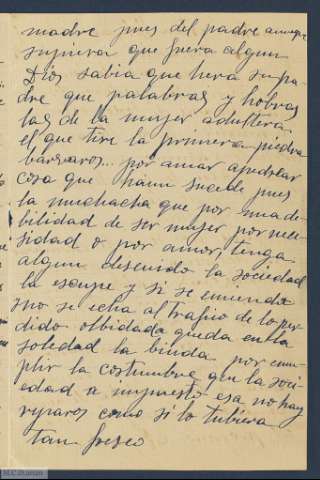 madre pues del padre aunque
supiera que fuera algun
Dios sabia que hera su pa
dre que palabras y hobras
las de la mujer adultera.
el que tire la primera piedra
barbaros... por amar apedrear
cosa que haun sucede pues
la muchacha que por una de
bilidad de ser mujer por nece
sidad o por amor, tenga
algun descuido la sociedad
la escupe y si se emienda
no se echa al trafico de lo per
dido olbidada queda en la
soledad la biuda por cum
plir la costumbre que la soci
edad a impuesto esa no hay
reparos como si lo tubiera
tan fresco